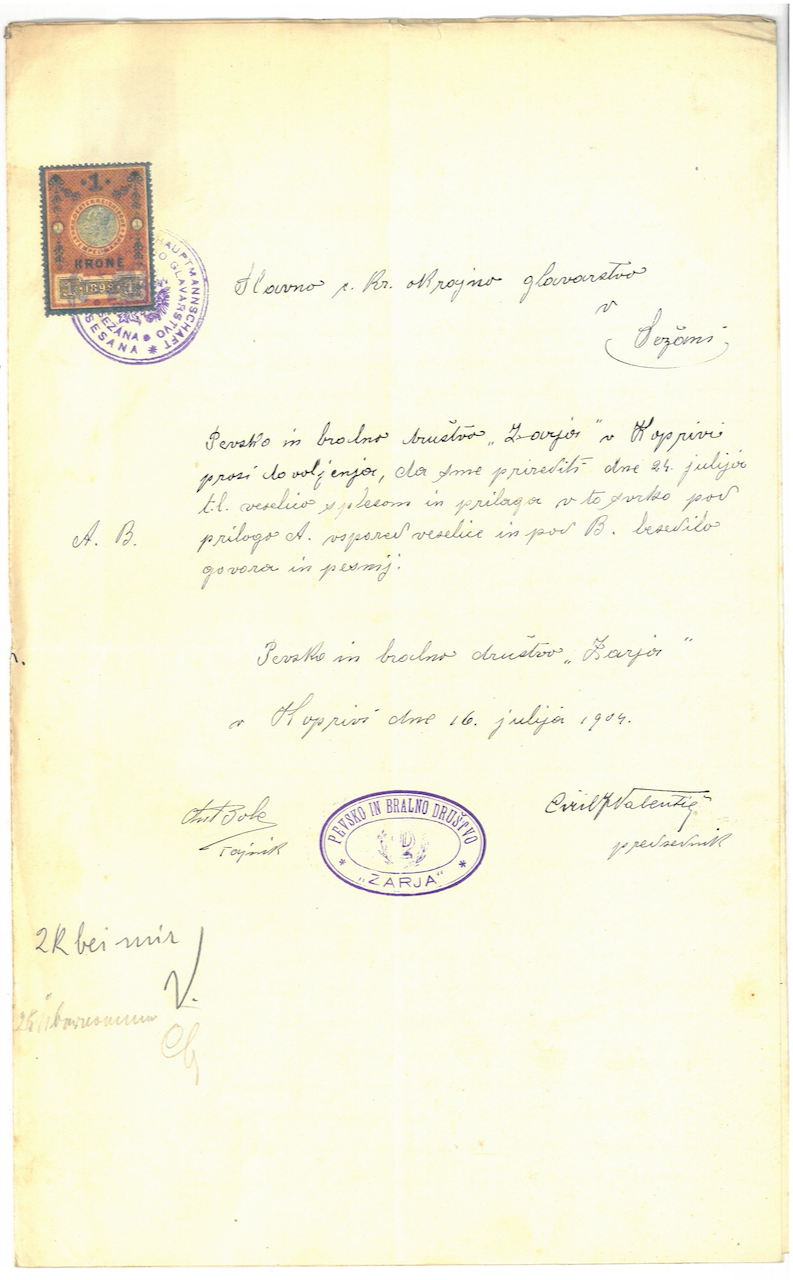 1
KRONE
1898
HAUPTMANNSCHAFT
GLAVARSTVO
SEŽANA
SESANA
Slavno c. kr. okrajno glavarstvo
v
Sežani
Pevsko in bralno društvo „Zarja" v Koprivi
prosi dovoljenja, da sme prirediti dne 24. julija
t.l. veselico s plesom in prilaga v to svrho pod
A. B.
prilogo A. vspored veselice in pod B. besedilo
govora in pesmij.
Pevsko in bralno društvo „Zarja"
v Koprivi dne 16. julija 1904.
Ant Bole
tajnik
PEVSKO IN BRALNO DRUŠTVO
„ZARJA"
Ciril Valentič
predsednik
2K bei mir